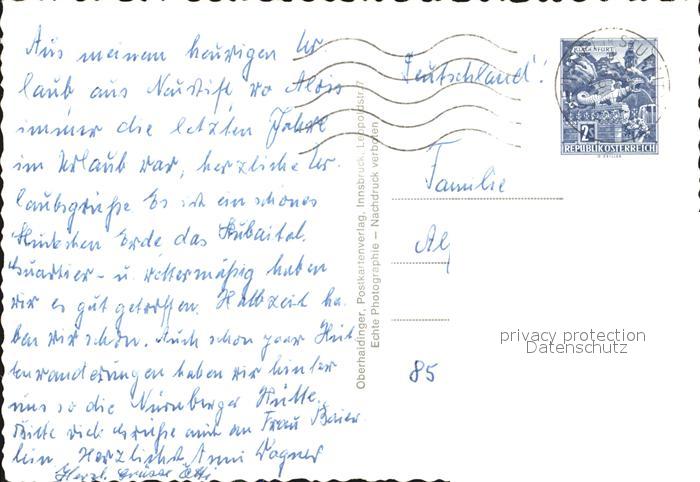 Aus meinem heurigen Ur-
laub aus Neustift wo Alois
immer die letzten Jahre
im Urlaub war, herzliche Ur-
laubsgrüße. Es ist ein schönes
Stückchen Erde das Stubaital.
Quartier- u. wettermäßig haben
wir es gut getroffen. Halbzeit ha-
ben wir schon. Auch schon paar Hüt-
tenwanderungen haben wir hinter
uns so die Nürnberger Hütte.
Bitte viele Grüße auch an Frau Baier
lein. Herzlichst Anni Wagner
Herzl. Grüsse
Oberhaidinger, Postkartenverlag, Innsbruck, Leopoldstr. 7
Echte Photographie – Nachdruck verboten
Deutschland!
KLAGENFURT
2S
REPUBLIK ÖSTERREICH
Familie
Al
85
privacy protection
Datenschutz